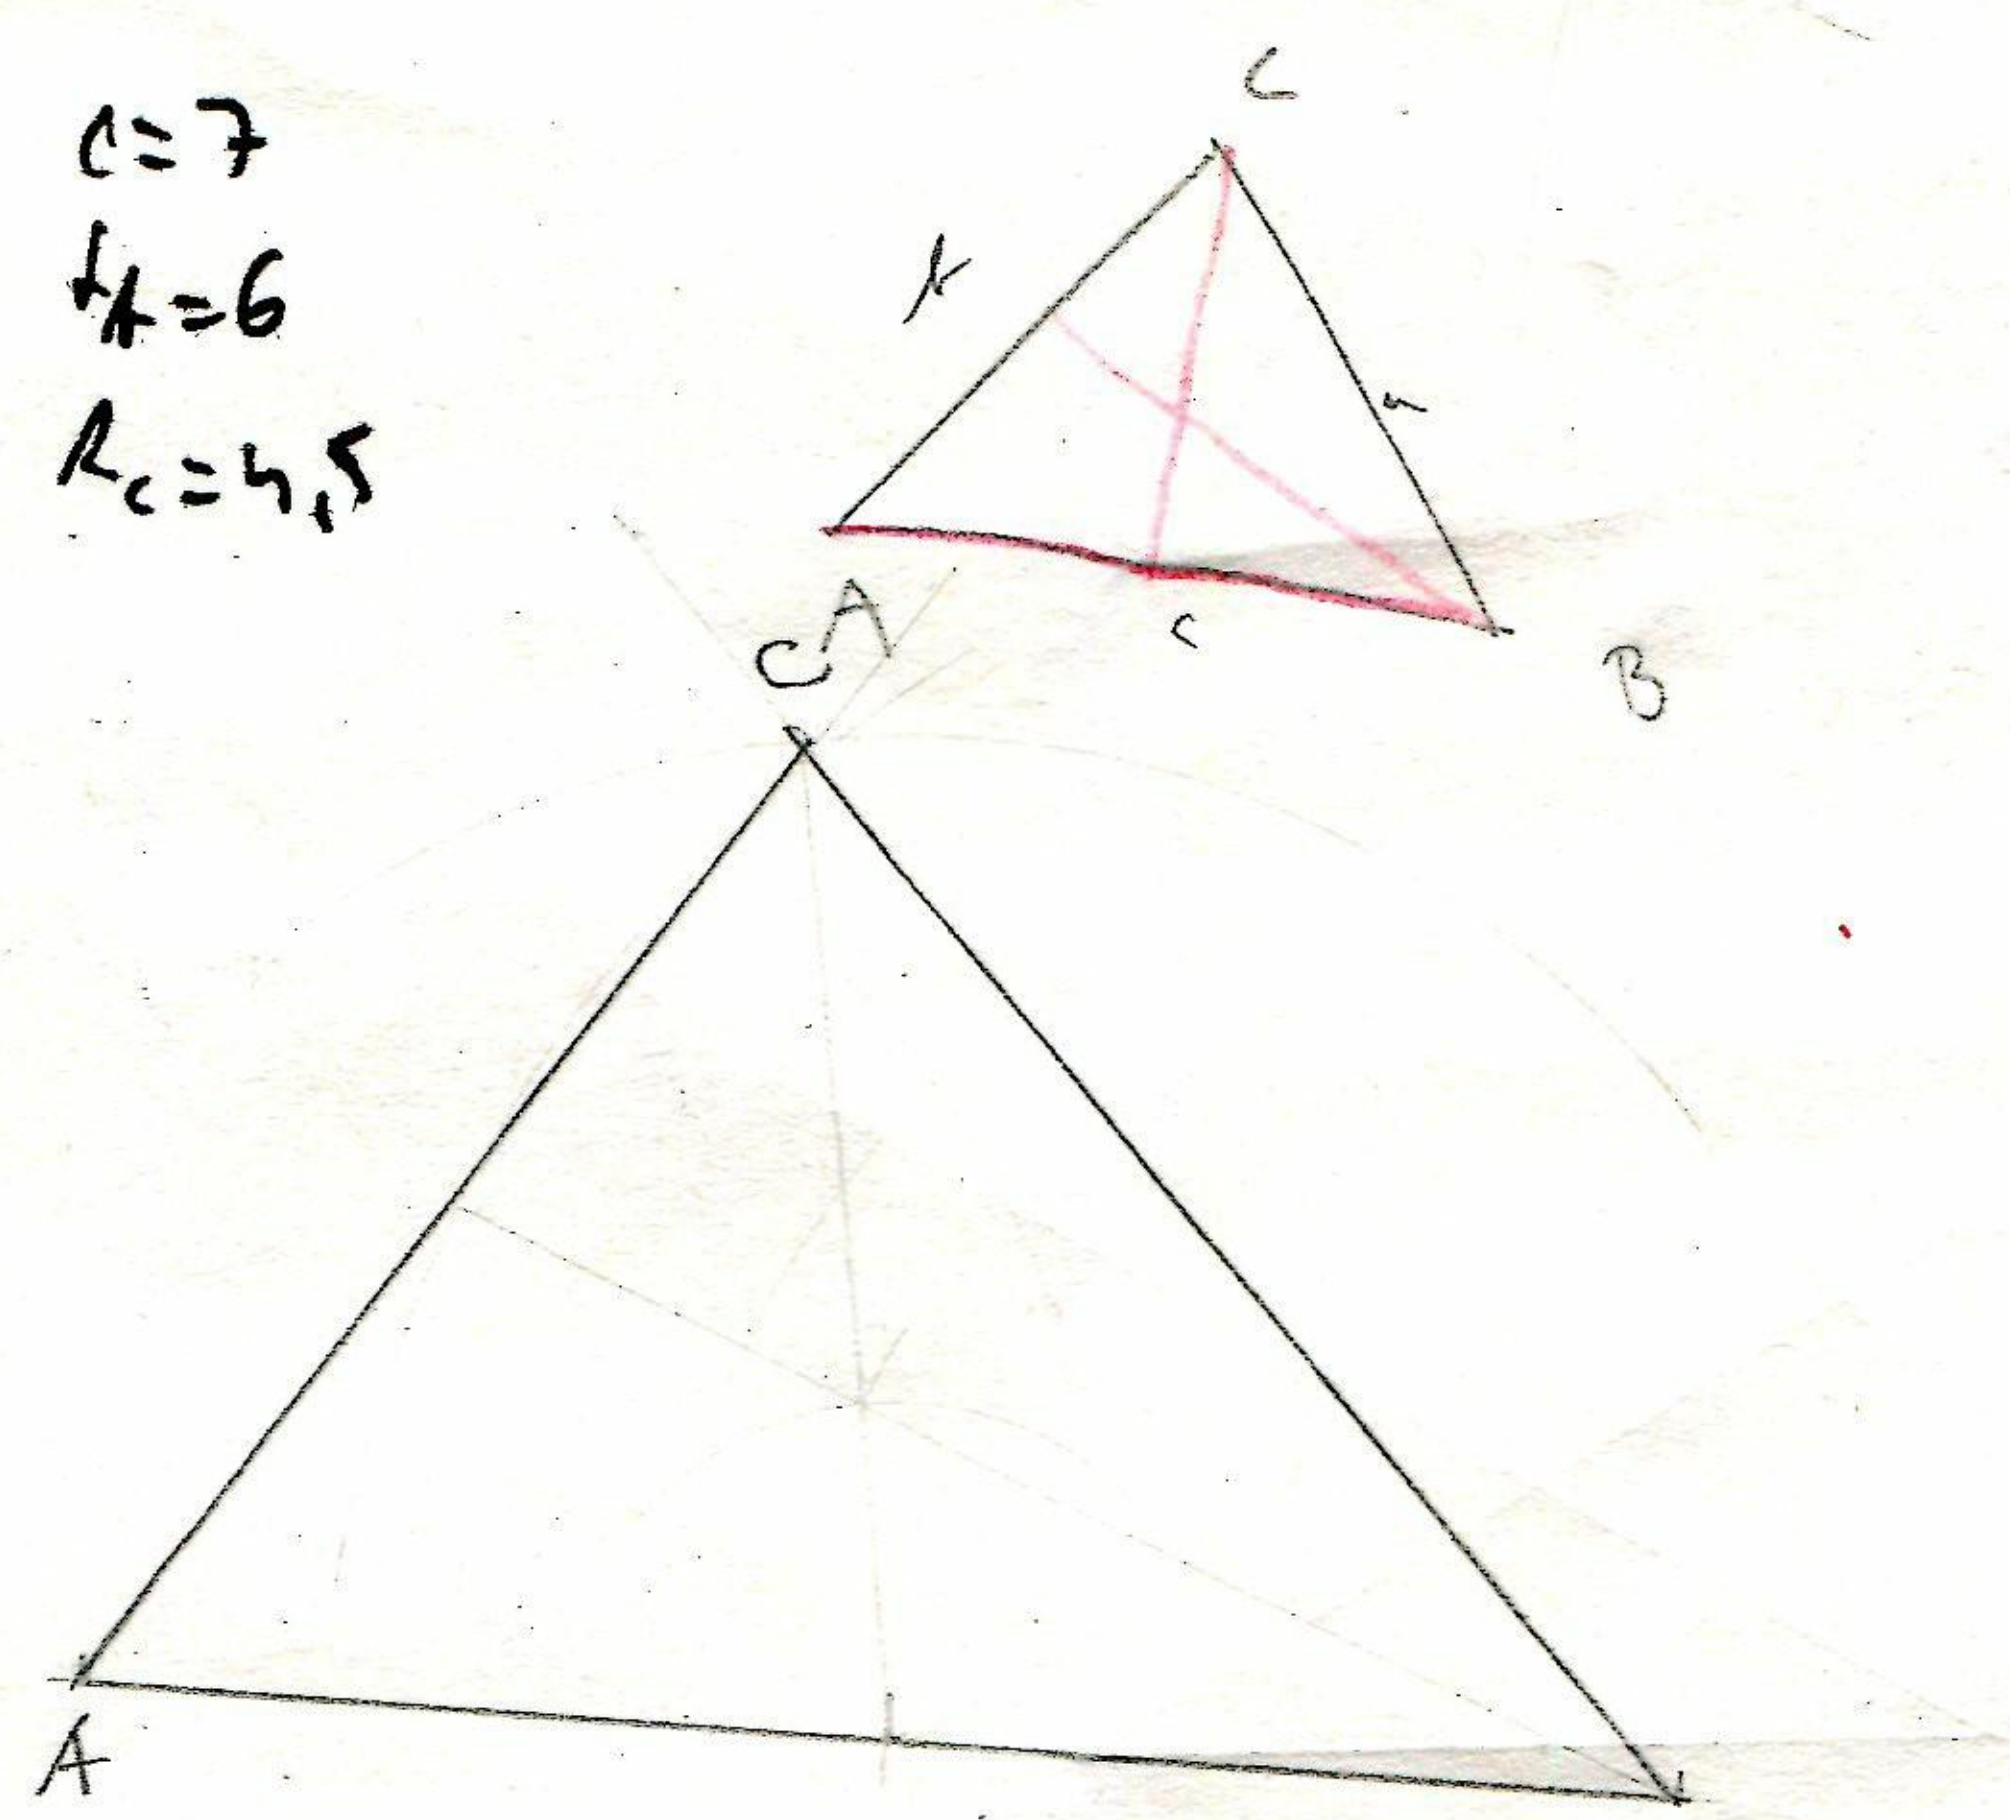 c=7
t_b=6
t_c=4,5
C
b
a
A
c
B
C
A